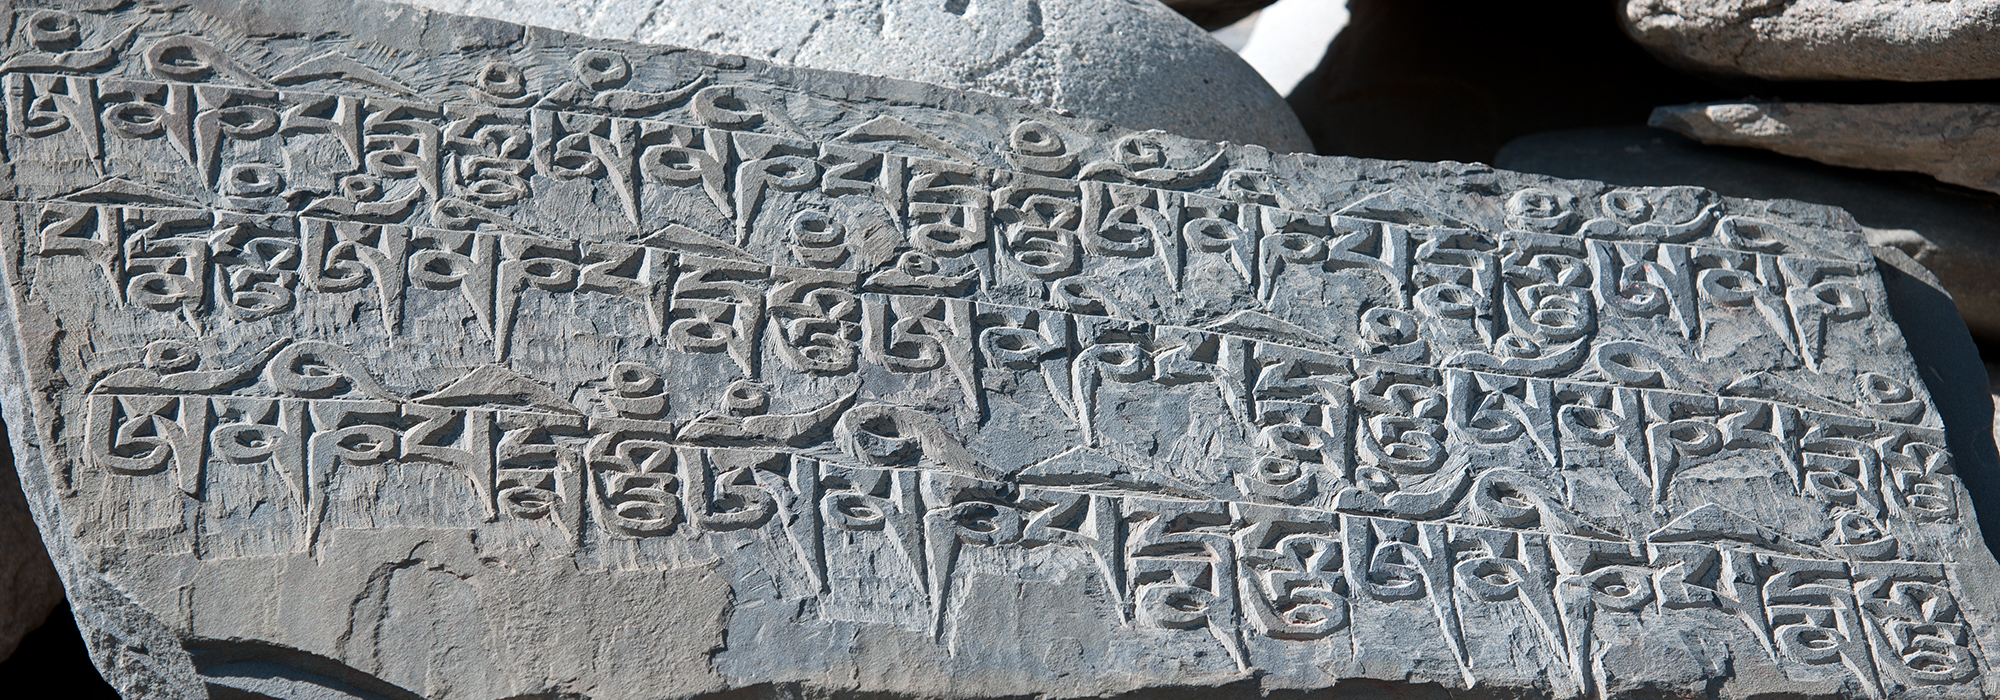 ཨོཾམཎིཔདྨེཧཱུྃཨོཾམཎིཔདྨེཧཱུྃཨོཾམཎིཔདྨེཧཱུྃཨོཾམཎི
པདྨེཧཱུྃཨོཾམཎིཔདྨེཧཱུྃཨོཾམཎིཔདྨེཧཱུྃཨོཾམཎིཔདྨེཧཱུྃ
ཨོཾམཎིཔདྨེཧཱུྃཨོཾམཎིཔདྨེཧཱུྃཨོཾམཎིཔདྨེཧཱུྃ